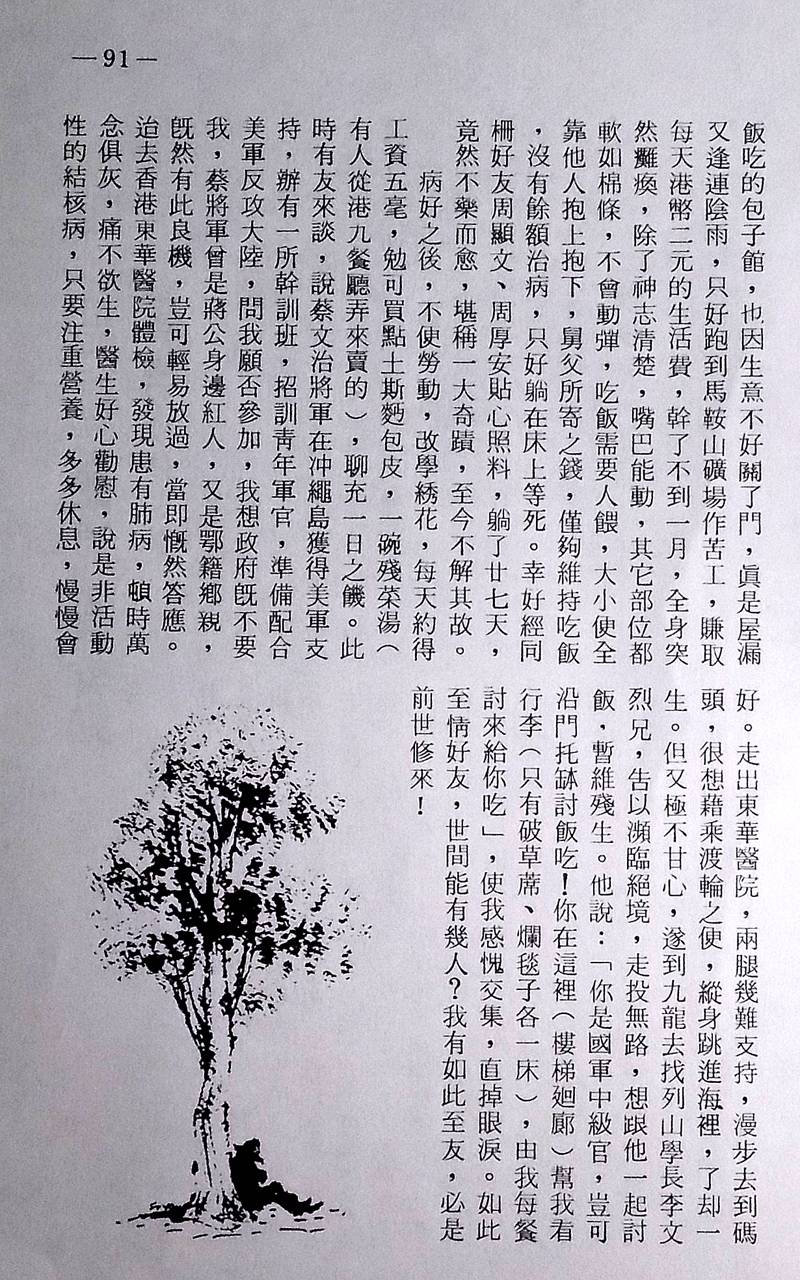 —91—
飯吃的包子館，也因生意不好關了門，眞是屋漏
又逢連陰雨，只好跑到馬鞍山礦場作苦工，賺取
每天港幣二元的生活費，幹了不到一月，全身突
然癱瘓，除了神志清楚，嘴巴能動，其它部位都
軟如棉條，不會動彈，吃飯需要人餵，大小便全
靠他人抱上抱下，舅父所寄之錢，僅夠維持吃飯
，沒有餘額治病，只好躺在床上等死。幸好經同
柵好友周顯文、周厚安貼心照料，躺了廿七天，
竟然不藥而愈，堪稱一大奇蹟，至今不解其故。
病好之後，不使勞動，改學綉花，每天約得
工資五毫，勉可買點土斯麪包皮，一碗殘菜湯（
有人從港九餐廳弄來賣的），聊充一日之饑。此
時有友來談，說蔡文治將軍在沖繩島獲得美軍支
持，辦有一所幹訓班，招訓青年軍官，準備配合
美軍反攻大陸，問我願否參加，我想政府旣不要
我，蔡將軍曾是蔣公身邊紅人，又是鄂籍鄉親，
旣然有此良機，豈可輕易放過，當即慨然答應。
迨去香港東華醫院體檢，發現患有肺病，頓時萬
念俱灰，痛不欲生，醫生好心勸慰，說是非活動
性的結核病，只要注重營養，多多休息，慢慢會
好。走出東華醫院，兩腿幾難支持，漫步去到碼
頭，很想藉乘渡輪之便，縱身跳進海裡，了却一
生。但又極不甘心，遂到九龍去找列山學長李文
烈兄，告以瀕臨絕境，走投無路，想跟他一起討
飯，暫維殘生。他說：「你是國軍中級官，豈可
沿門托缽討飯吃！你在這裡（樓梯廻廊）幫我看
行李（只有破草蓆、爛毯子各一床），由我每餐
討來給你吃」，使我感愧交集，直掉眼淚。如此
至情好友，世間能有幾人？我有如此至友，必是
前世修來！